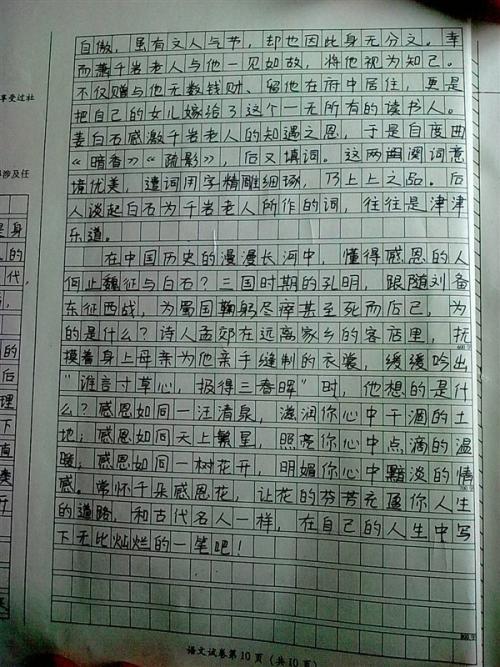 自傲，虽有文人气节，却也因此身无分文。幸
而萧千岩老人与他一见如故，将他视为知己。
不仅赠与他无数钱财、留他在府中居住，更是
把自己的女儿嫁给了这个一无所有的读书人。
姜白石感激千岩老人的知遇之恩，于是自度曲
《暗香》《疏影》，后又填词。这两阕词意
境优美，遣词用字精雕细琢，乃上上之品。后
人谈起白石为千岩老人所作的词，往往是津津
乐道。
在中国历史的漫漫长河中，懂得感恩的人
何止魏征与白石？三国时期的孔明，跟随刘备
东征西战，为蜀国鞠躬尽瘁甚至死而后已，为
的是什么？诗人孟郊在远离家乡的客店里，抚
摸着身上母亲为他亲手缝制的衣裳，缓缓吟出
“谁言寸草心，报得三春晖”时，他想的是什
么？感恩如同一汪清泉，滋润你心中干涸的土
地；感恩如同天上繁星，照亮你心中点滴的温
暖；感恩如同一树花开，明媚你心中黯淡的情
感。常怀千朵感恩花，让花的芬芳充盈你人生
的道路，和古代名人一样，在自己的人生中写
下无比灿烂的一笔吧！
语文试卷第10页（共10页）
享受过社
涉及任
是身
的
代，
的
后
理
下